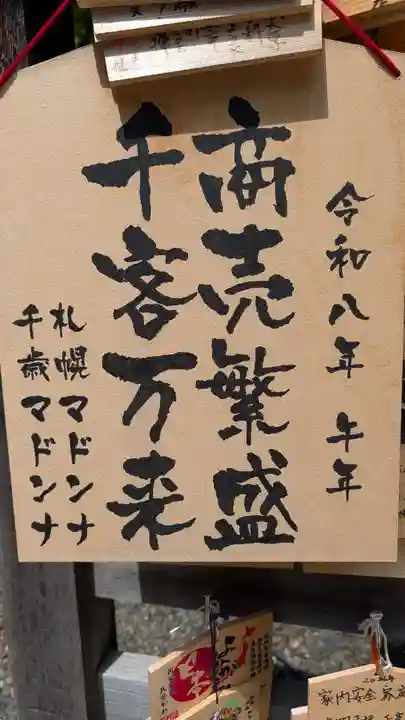 令和八年 午年
商売繁盛
千客万来
札幌マドンナ
千歳マドンナ
家内安全